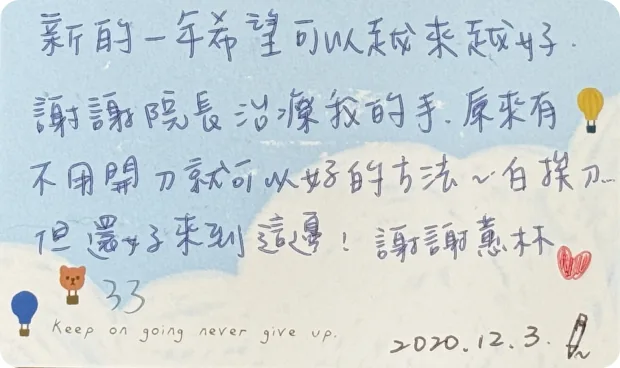 新的一年希望可以越來越好.
謝謝院長治療我的手.原來有
不用開刀就可以好的方法～白挨刀...
但還好來到這邊！謝謝蕙林
33
Keep on going never give up.
2020.12.3.